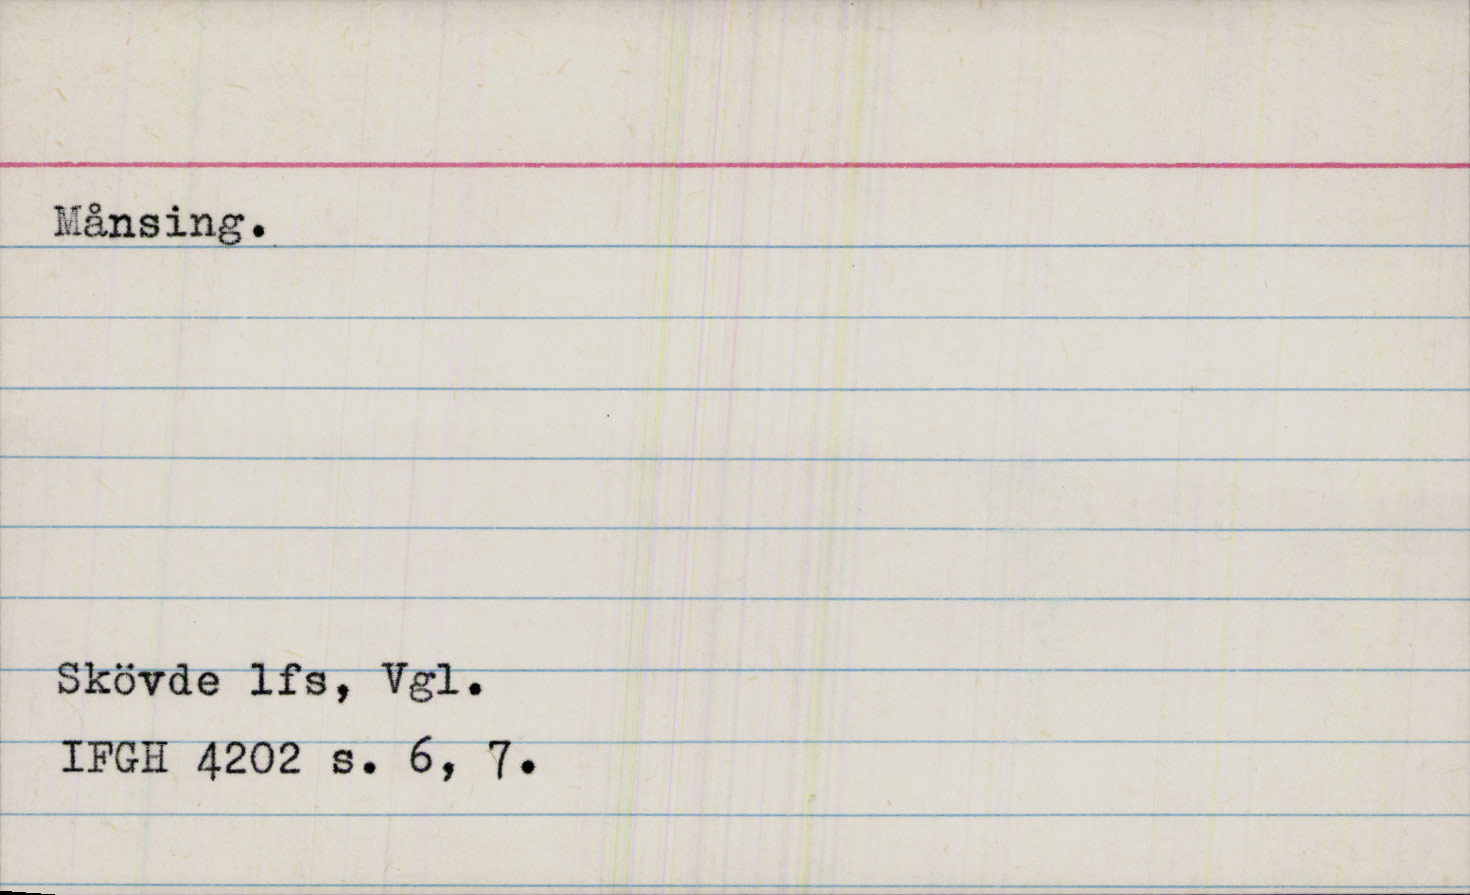 Månsing.
Skövde lfs, Vgl.
IFGH 4202 s. 6, 7.